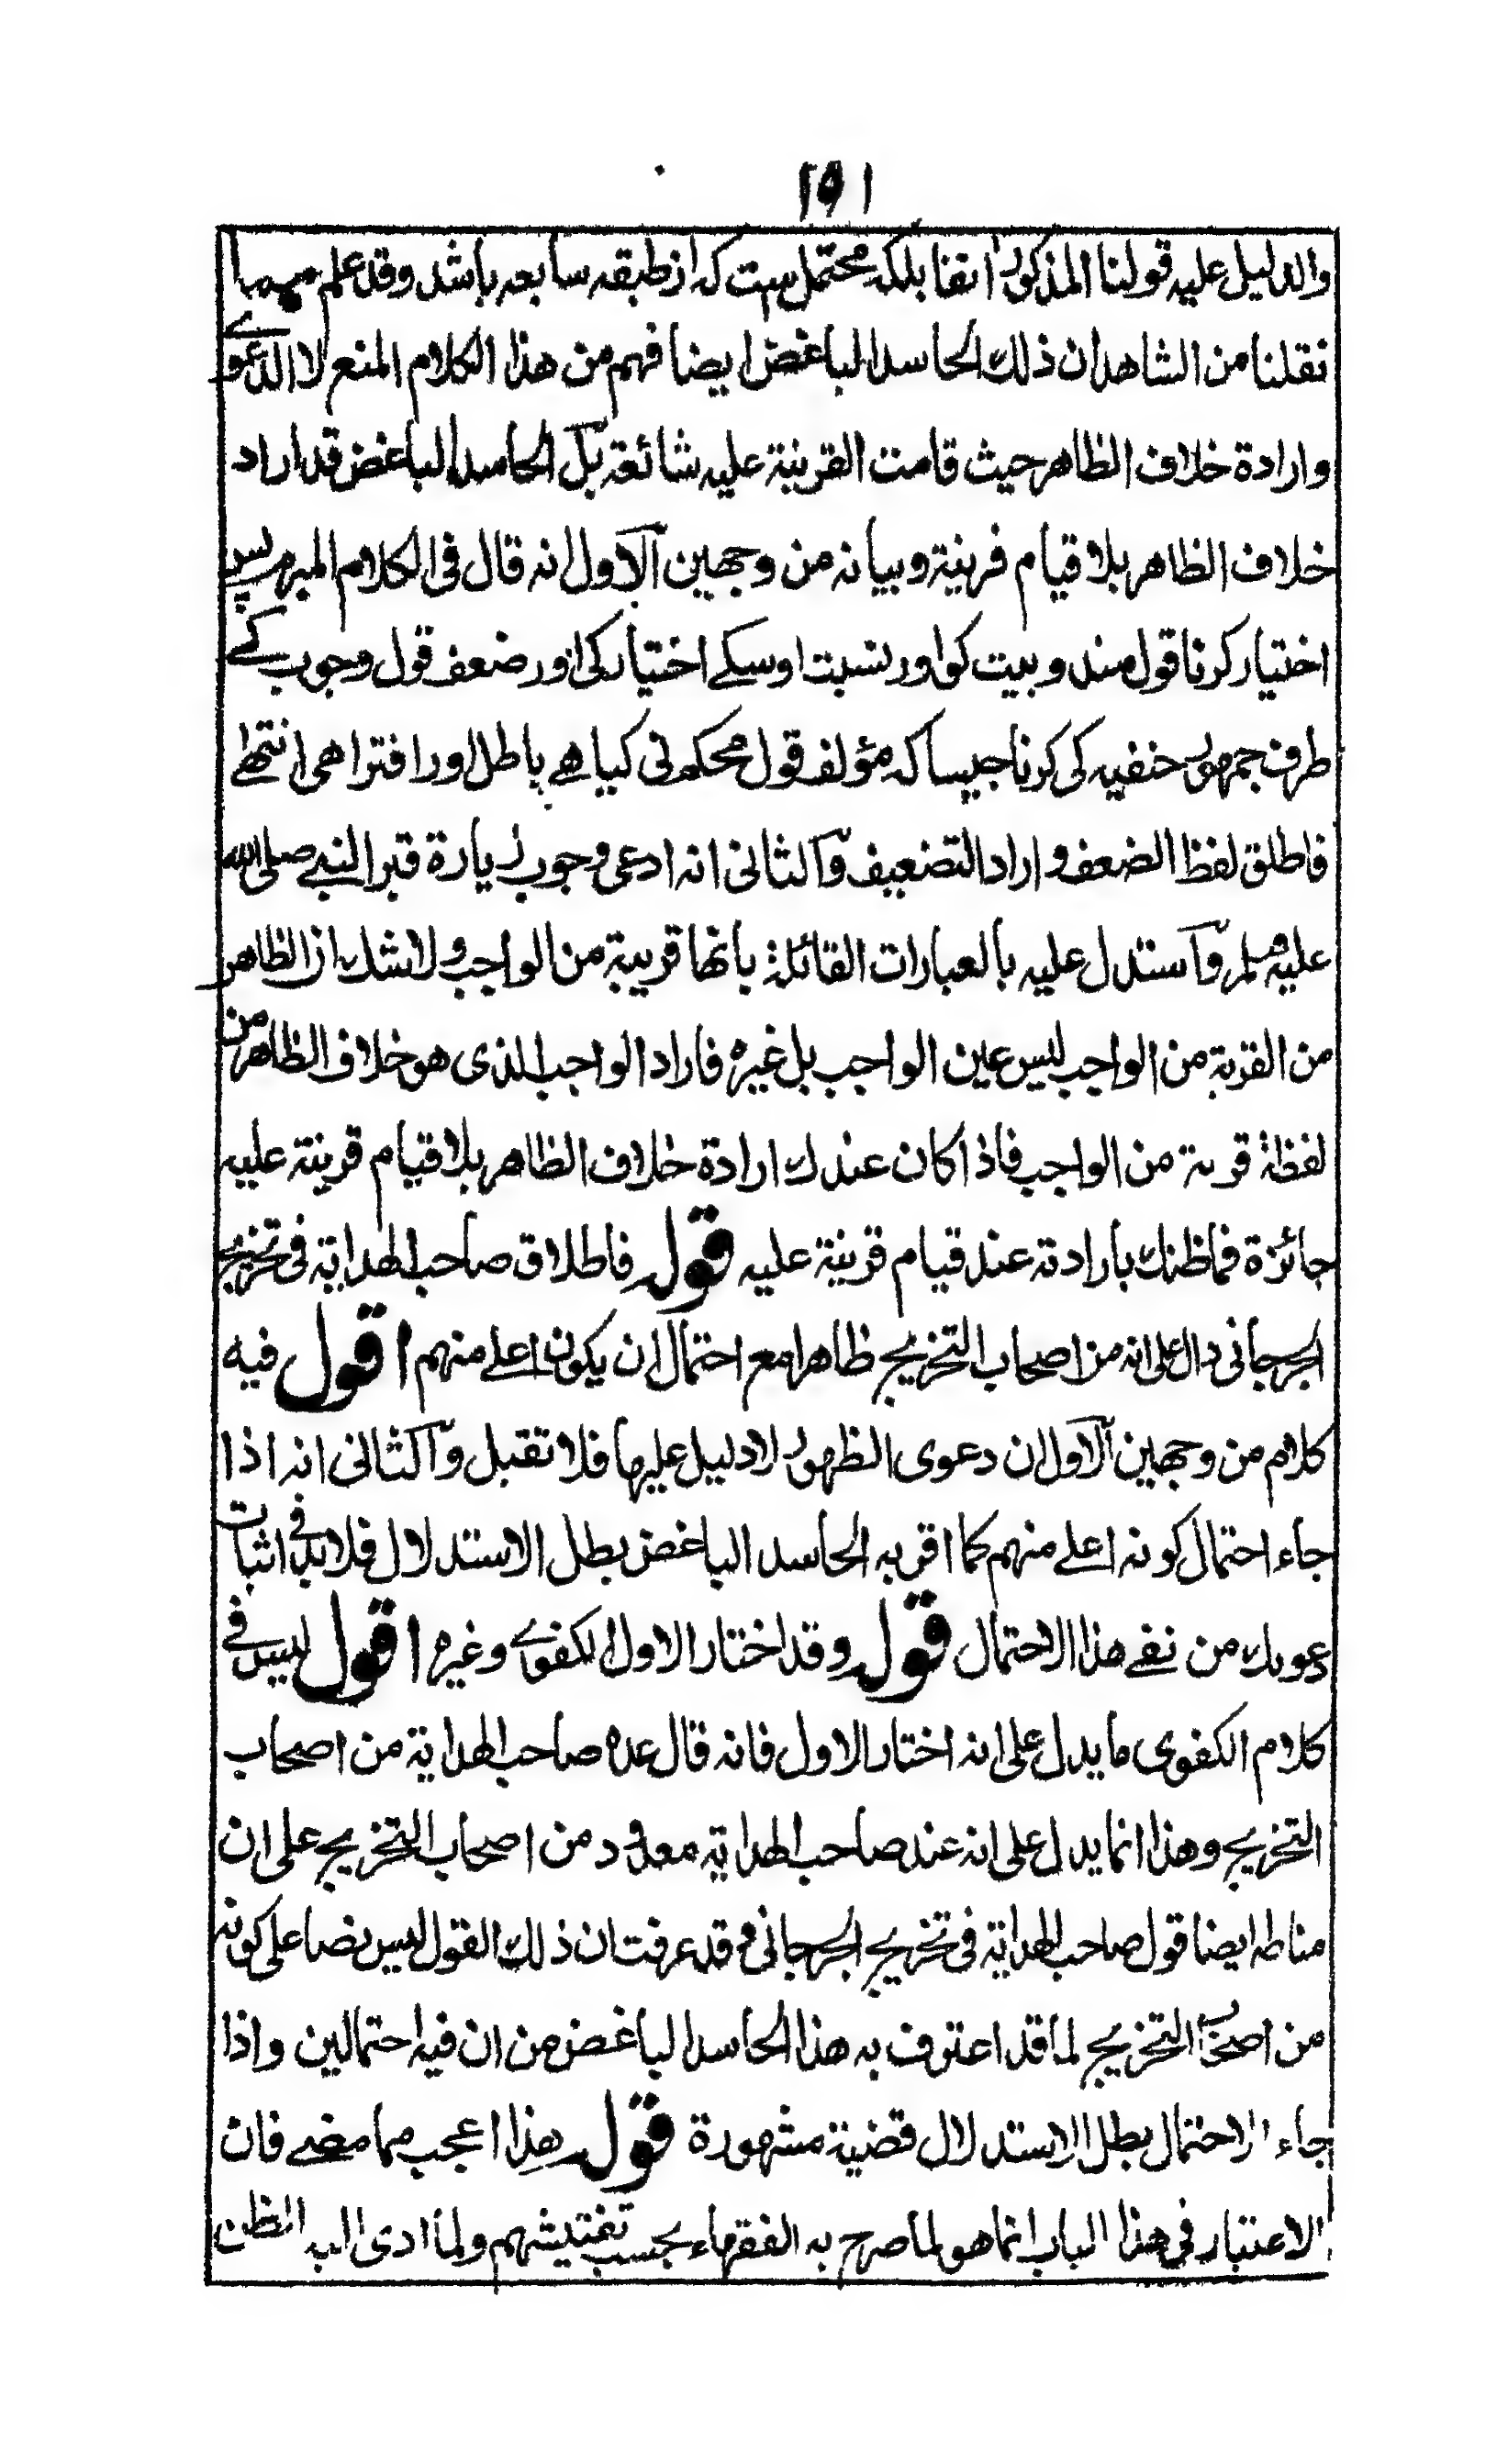 ١٥١
والدليل عليه قولنا المذكور انفا بلكه محتمل ست كه از طبقه سابعه باشد وقد علم مهما
نقلنا من الشاهدان ذلك الحاسد الباغض ايضا فهم من هذا الكلام المنع لا الدعوے
وارادة خلاف الظاهر حيث قامت القرينة عليه شائعة بل الحاسد الباغض قد اراد
خلاف الظاهر بلا قيام قرينة وبيانه من وجهين الاول انه قال فى الكلام المبرم پس
اختيار كرنا قول مندوبيت كو اور نسبت اوسكے اختيار كى اور ضعف قول وجوب كے
طرف جمهور حنفيه كى كرنا جيسا كه مؤلف قول محكم نى كيا هے باطل اور افترا هى انتهے
فاطلق لفظ الضعف واراد التضعيف والثانى انه ادعى وجوب زيارة قبر النبے صلى الله
عليه وسلم واستدل عليه بالعبارات القائلة بانها قريبة من الواجب ولا شك ان الظاهر
من القربة من الواجب ليس عين الواجب بل غيره فاراد الواجب الذى هو خلاف الظاهر من
لفظة قربة من الواجب فاذا كان عندك ارادة خلاف الظاهر بلا قيام قرينة عليه
جائزة فما ظنك بارادته عند قيام قرينة عليه قوله فاطلاق صاحب الهداية فى تخريج
الجرجانى دال على انه من اصحاب التخريج ظاهرا مع احتمال ان يكون اعلے منهم اقول فيه
كلام من وجهين الاول ان دعوى الظهور لا دليل عليها فلا تقبل والثانى انه اذا
جاء احتمال كونه اعلے منهم كما اقر به الحاسد الباغض بطل الاستدلال فلا بد فى اثبات
دعوىك من نفے هذا الاحتمال قوله وقد اختار الاول الكفوے وغيره اقول ليس فى
كلام الكفوى ما يدل على انه اختار الاول فانه قال عده صاحب الهداية من اصحاب
التخريج وهذا انما يدل على انه عند صاحب الهداية معدود من اصحاب التخريج على ان
مناطه ايضا قول صاحب الهداية فى تخريج الجرجانى وقد عرفت ان ذلك القول ليس نصا على كونه
من اصحاب التخريج لما قد اعترف به هذا الحاسد الباغض من ان فيه احتمالين واذا
جاء الاحتمال بطل الاستدلال قضية مشهورة قوله هذا اعجب مما مضے فان
الاعتبار فى هذا الباب انما هو لما صرح به الفقهاء بحسب تفتيشهم ولما ادى اليه الظن